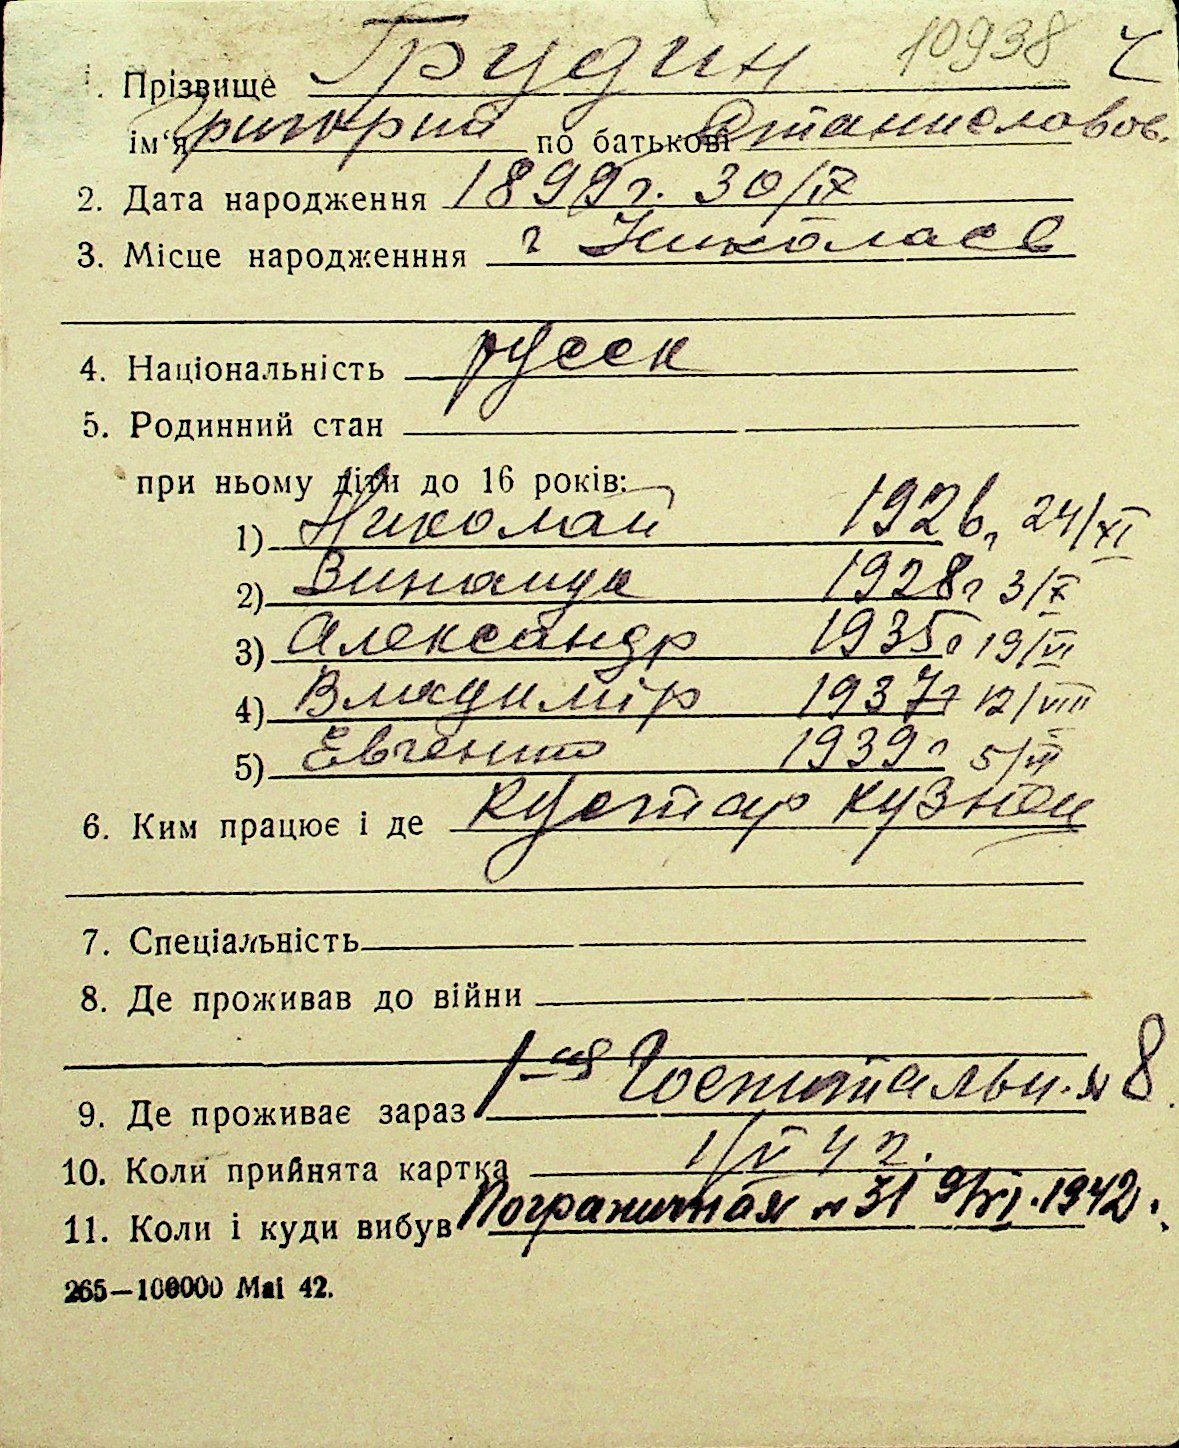 10938
1. Прізвище Грудин
ім'я Григорий по батькові Станиславов.
2. Дата народження 1899 г. 30/IX
3. Місце народженння г Николаев
4. Національність русск
5. Родинний стан
при ньому діти до 16 років:
1) Николай 1926г 24/XI
2) Зинаида 1928г 3/X
3) Александр 1935г 19/VI
4) Владимір 1937г 12/VIII
5) Евгений 1939г
6. Ким працює і де Кустар кузнец
7. Спеціальність
8. Де проживав до війни
9. Де проживає зараз 1-ая Госпитальн. № 8
10. Коли прийнята картка 1/VI 42.
11. Коли і куди вибув Пограничная № 31 1942.
265—100000 Mai 42.